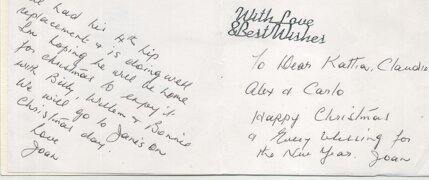 had his 4th hip
replacement & is doing well
Im hoping he will be home
for christmas to enjoy it
with Billy, William & Bonnie
We will go to Janie's on
Christmas day.
Love
Joan
With Love
& Best Wishes
To Dear Kathia, Claudia
Alex & Carlo
Happy Christmas
& Every blessing for
the New Year. Joan